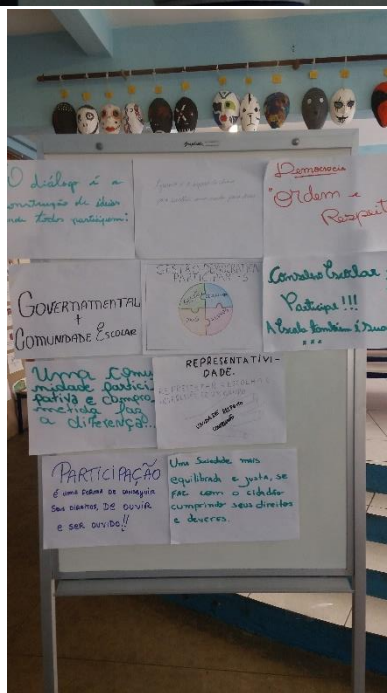 O diálogo é a
construção de ideias
onde todos participam!
Democracia
"Ordem e
Respeit
GOVERNAMENTAL
+
COMUNIDADE ESCOLAR
GESTÃO DEMOCRÁTICA
PARTICIPAR-S
Conselho Escolar
Participe!!!
A Escola também é Sua
...
Uma comu
nidade partici
pativa e compro
metida faz
a diferença!..
REPRESENTATIVI-
DADE.
PARTICIPAÇÃO
É UMA FORMA DE CONSEGUIR
SEUS DIREITOS, DE OUVIR
E SER OUVIDO!!
Uma Sociedade mais
equilibrada e justa, se
faz com o cidadão
cumprindo seus direitos
e deveres.